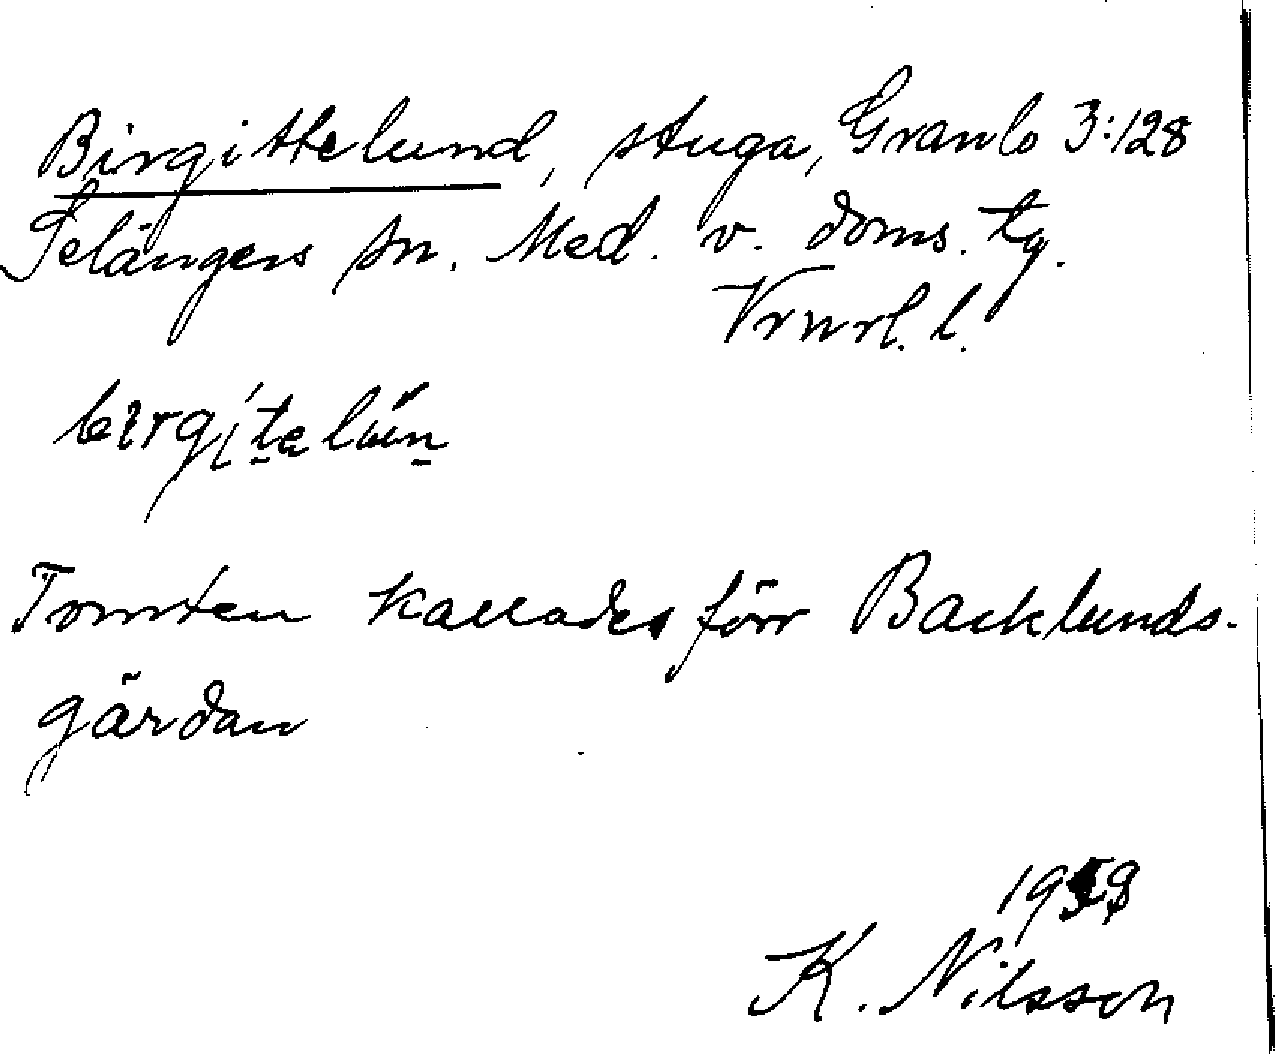 Birgittelund, stuga, Granlo 3:128
Selångers sn. Med. v. doms. tg.
Vrnrl. l.
Tomten kallades för Backlunds-
gårdan
K. Nilsson